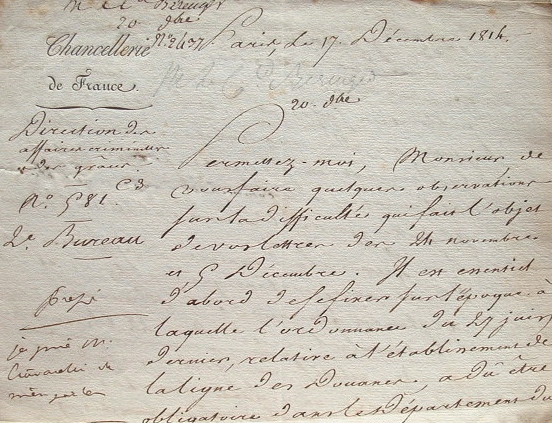 20. xbre
Chancellerie
de France.
N.º 3437.
Paris, Le 17. Décembre 1814.
M. le Cte. Berenger
20. xbre
Direction des
affaires criminelles
& des grâces.
Nº. 581. C 3
2e. Bureau
Permettez-moi, Monsieur de
vous faire quelques observations
sur la difficulté qui fait l'objet
de vos lettres des 24 novembre
et 5 Décembre. Il est essentiel
d'abord de se fixer sur l'époque à
laquelle l'ordonnance du 27 juin
dernier, relative à l'établissement de
la ligne des Douanes, a dû être
obligatoire dans le Département du
je prie M.